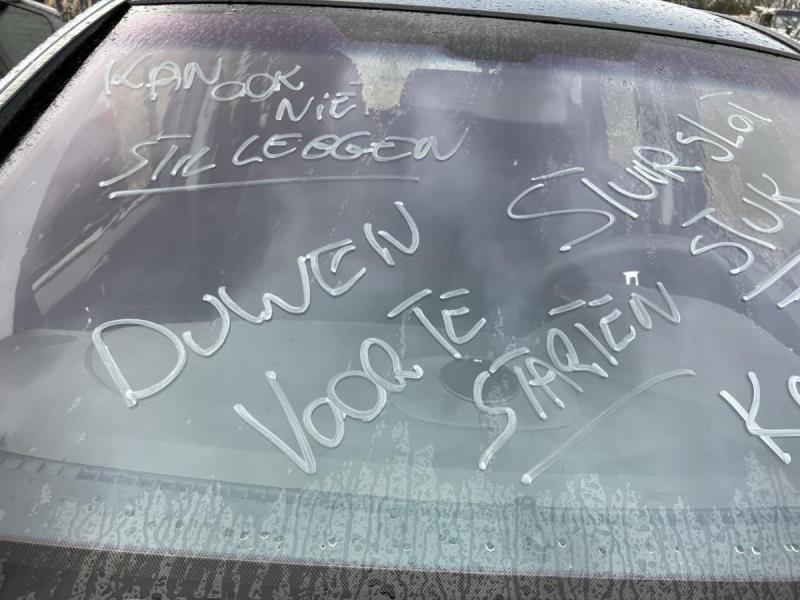 KAN OOK
NIET
STIL LEGGEN
STUURSLOT
STUK
DUWEN
VOOR TE
STARTEN